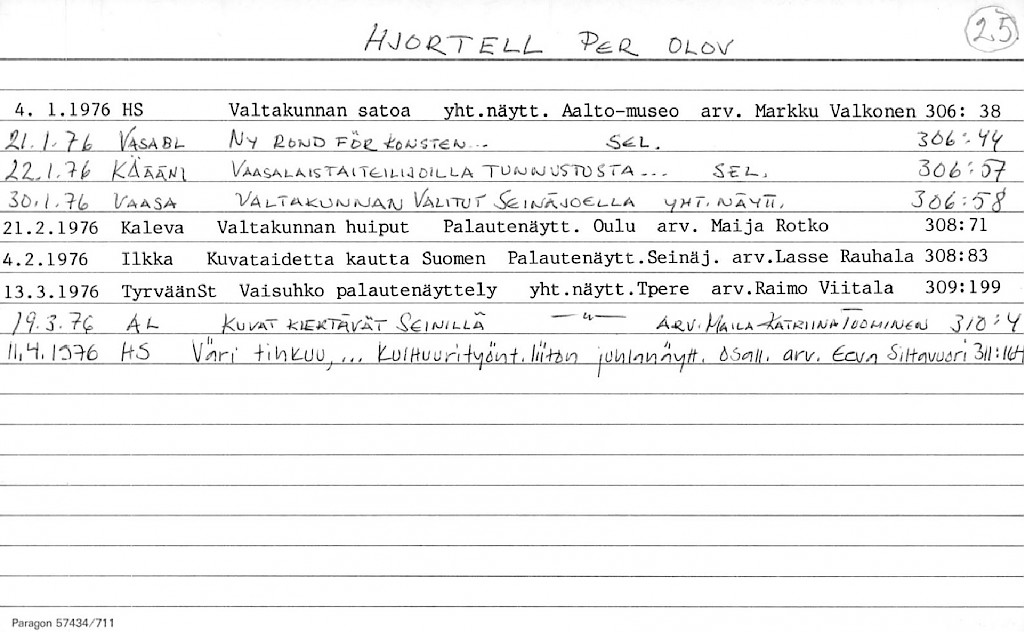 HJORTELL PER OLOV 25
4. 1.1976 HS Valtakunnan satoa yht.näytt. Aalto-museo arv. Markku Valkonen 306: 38
21.1.76 VASABL NY ROND FÖR KONSTEN... SEL. 306:44
22.1.76 KÄÄÄNI VAASALAISTAITEILIJOILLA TUNNUSTOSTA... SEL. 306:57
30.1.76 VAASA VALTAKUNNAN VALITUT SEINÄJOELLA YHT.NÄYTT. 306:58
21.2.1976 Kaleva Valtakunnan huiput Palautenäytt. Oulu arv. Maija Rotko 308:71
4.2.1976 Ilkka Kuvataidetta kautta Suomen Palautenäytt.Seinäj. arv.Lasse Rauhala 308:83
13.3.1976 TyrväänSt Vaisuhko palautenäyttely yht.näytt.Tpere arv.Raimo Viitala 309:199
19.3.76 AL KUVAT KIERTÄVÄT SEINILLÄ —"— ARV. MAILA-KATRIINA TUOMINEN 310:4
11.4.1976 HS Väri tihkuu,... Kulttuurityönt.liiton juhlanäytt. osall. arv. Eeva Siltavuori 311:164
Paragon 57434/711